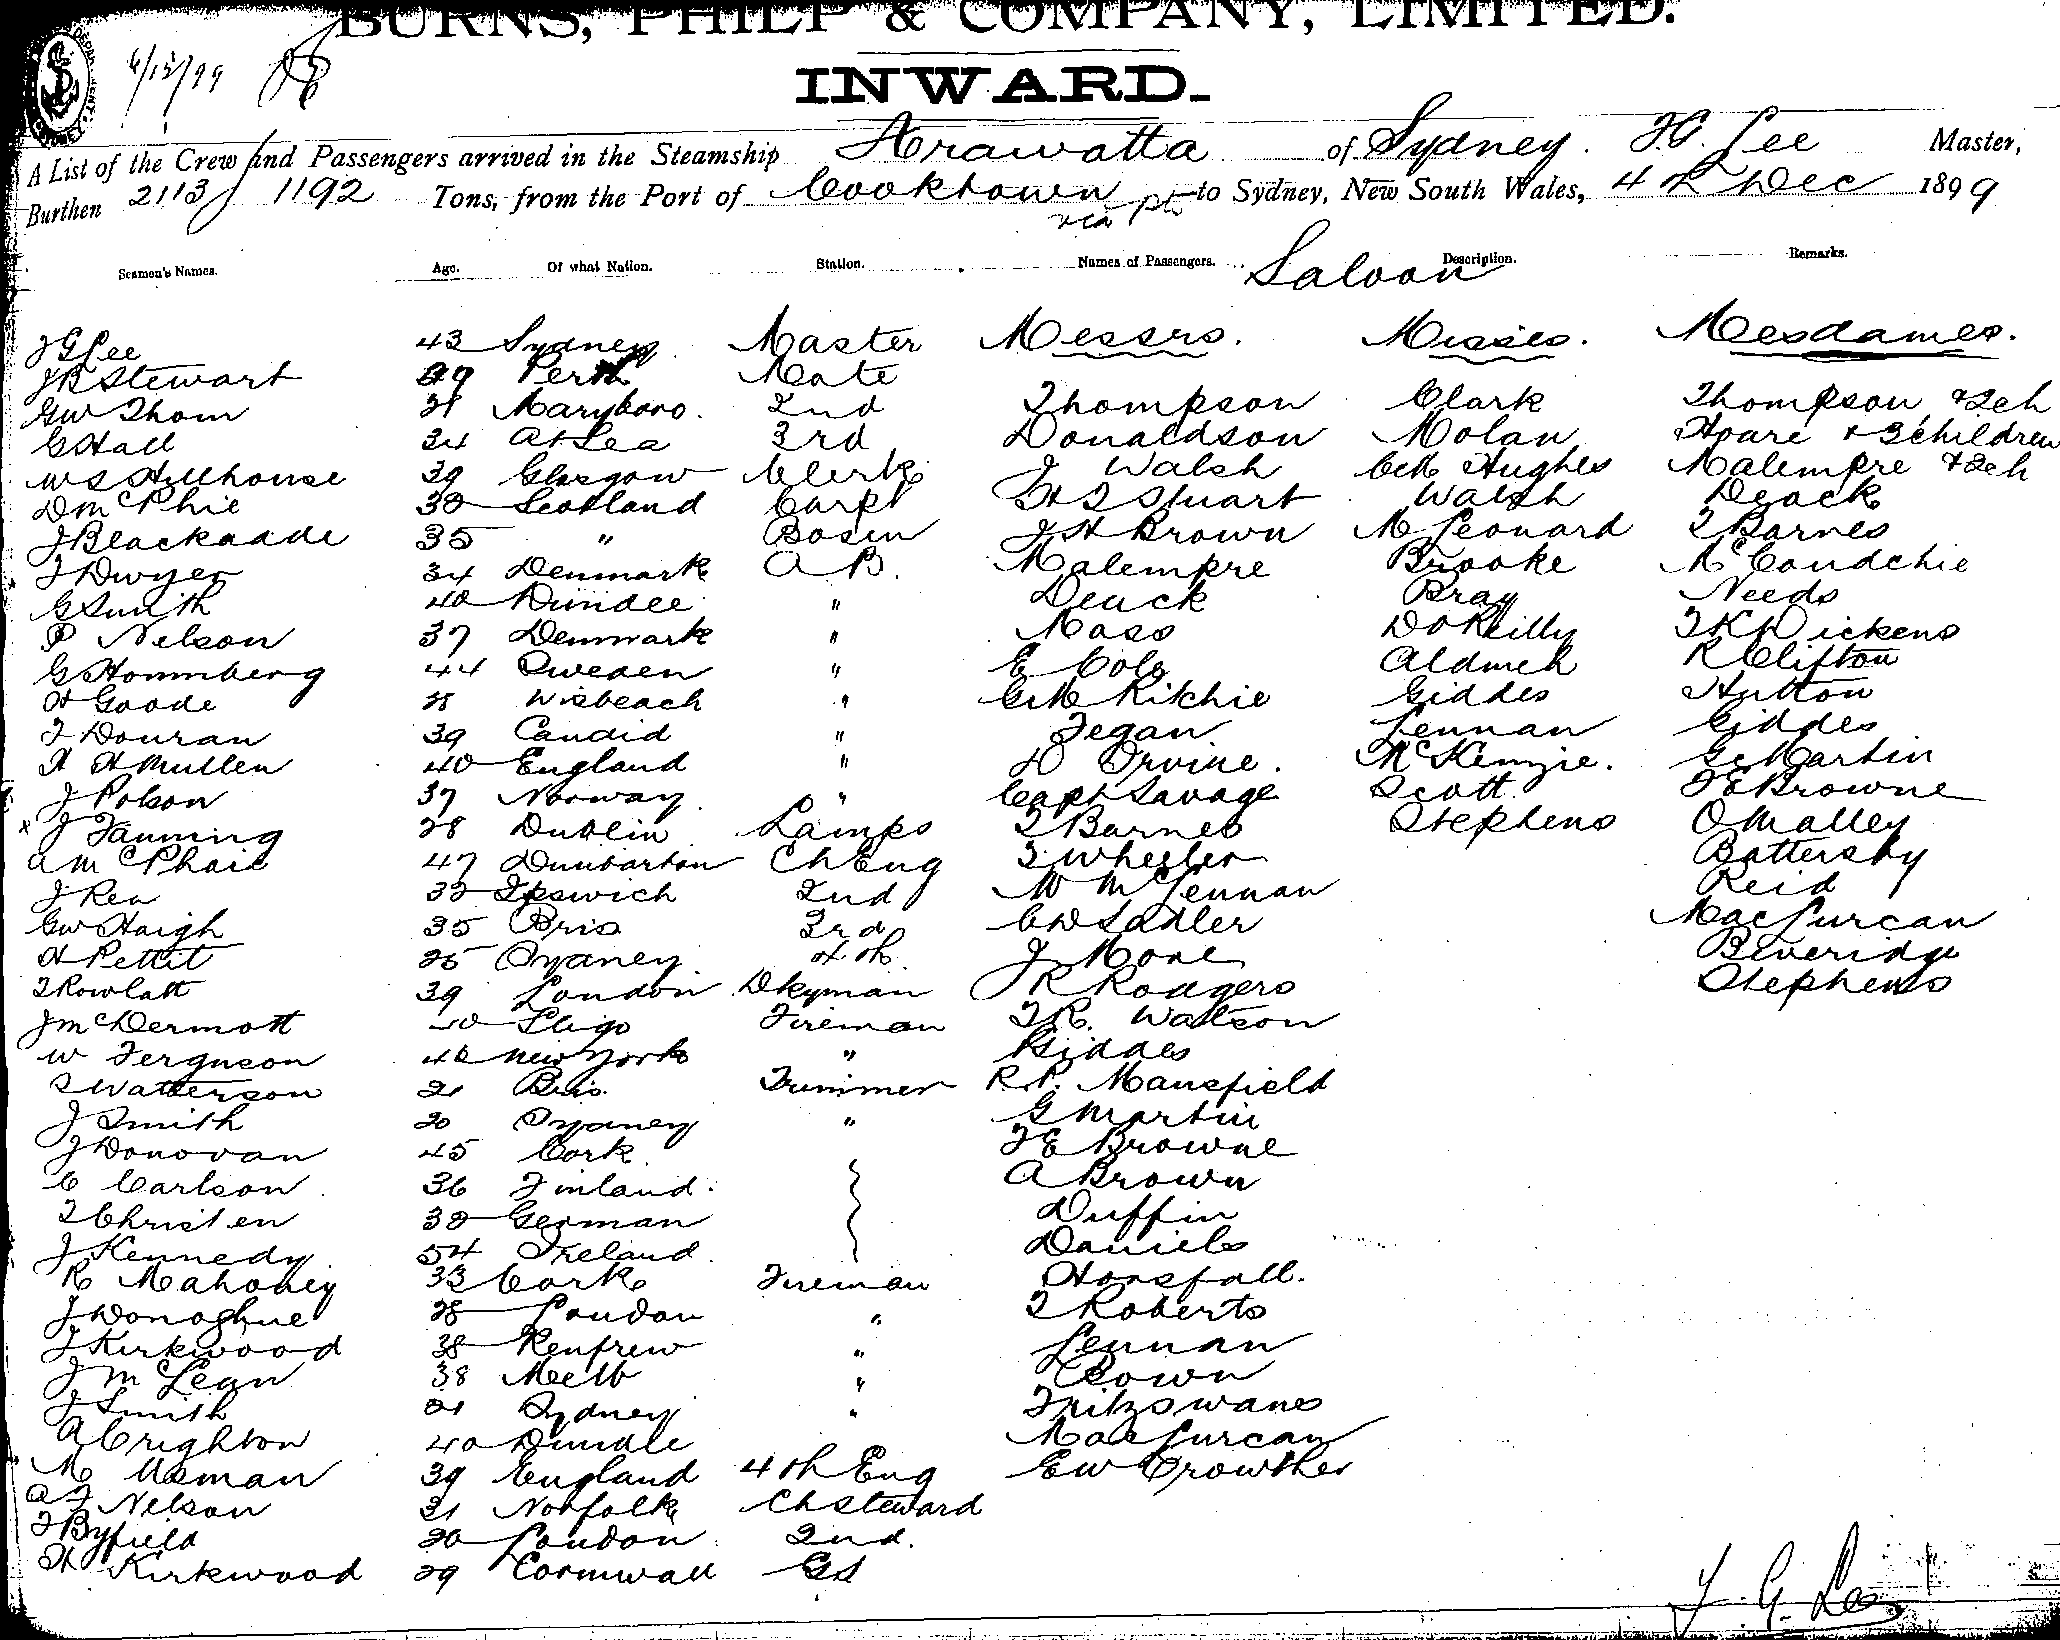 BURNS, PHILP & COMPANY, LIMITED.
6/12/99
INWARD.
A List of the Crew and Passengers arrived in the Steamship Arawatta of Sydney. J G Lee Master,
Burthen 2113/1192 Tons, from the Port of Cooktown to Sydney, New South Wales, 4th Dec 1899
via pts
Seamen's Names. Age. Of what Nation. Station. Names of Passengers. Saloon Description. Remarks.
J G Lee 43 Sydney Master Messrs. Misses. Mesdames.
J B Stewart 49 Perth Mate
G W Thom 31 Maryboro. 2nd Thompson Clark Thompson & 2ch
G Hall 34 At Sea 3rd Donaldson Molan Hoare & 3 children
W S Hillhouse 39 Glasgow Clerk J Walsh C M Hughes Malempre & 2ch
D McPhie 38 Scotland Carpt H S Stuart Walsh Deack
J Blackadde 35 " Bosun J H Brown M Leonard T Barnes
J Dwyer 34 Denmark A B. Malempre Brooke
G Smith 40 Dundee " Deuck Bray Needs
P Nelson 37 Denmark " Moss D O'Reilly T K Dickens
G Hommberg 44 Sweden " E Cole R Clifton
H Goode 28 Wisbeach " G M Ritchie Giddes Hutton
J Douran 39 " Fegan Lennan Giddes
H H Mullen 40 England " D Irvine. McKenzie. G Martin
J Polson 37 Norway. " Capt Savage Scott. J E Browne
x J Fanning 28 Dublin Lamps T Barnes Stephens O'Malley
A McPhail 47 Dunbarton Ch Eng T Wheeler Battersby
J Rea 33 Ipswich 2nd W McLennan Reid
G W Haigh 35 Bris 3rd C W Sadler MacLurcan
H Pettit 25 Sydney 4th Beveridge
T Rowlatt 39 London Dkyman J R Rodgers Stephens
J McDermott Sligo Fireman T R. Watson
W Ferguson 40 New York " Giddes
T Watterson 21 Bris. Trimmer R. P. Mansfield
J Smith 20 Sydney " G Martin
J Donovan 45 Cork J E Browne
C Carlson 36 Finland. A Brown
T Christen 38 German Duffin
J Kennedy 54 Ireland Daniels
R Mahoney 33 Cork Fireman Horsfall.
J Donoghue 28 London " T Roberts
J Kirkwood 38 Renfrew " Lennan
J McLean 38 Melb " Bown
J Smith 21 Sydney "
A Crighton 40 Dundee MacLurcan
M Usman 39 England 4th Eng E W Crowther
A J Nelson 31 Norfolk Ch Steward
J Byfield 20 London 2nd.
H Kirkwood 29 Cornwall
J. G. Lee